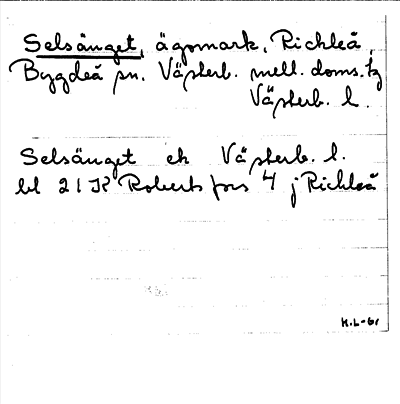 Selsänget, ägomark, Richleå,
Bygdeå sn. Västerb. mell. doms. tg
Västerb. l.
Selsänget ek Västerb. l.
bl 21 K Robertsfors 4 j Richleå
K.L-61